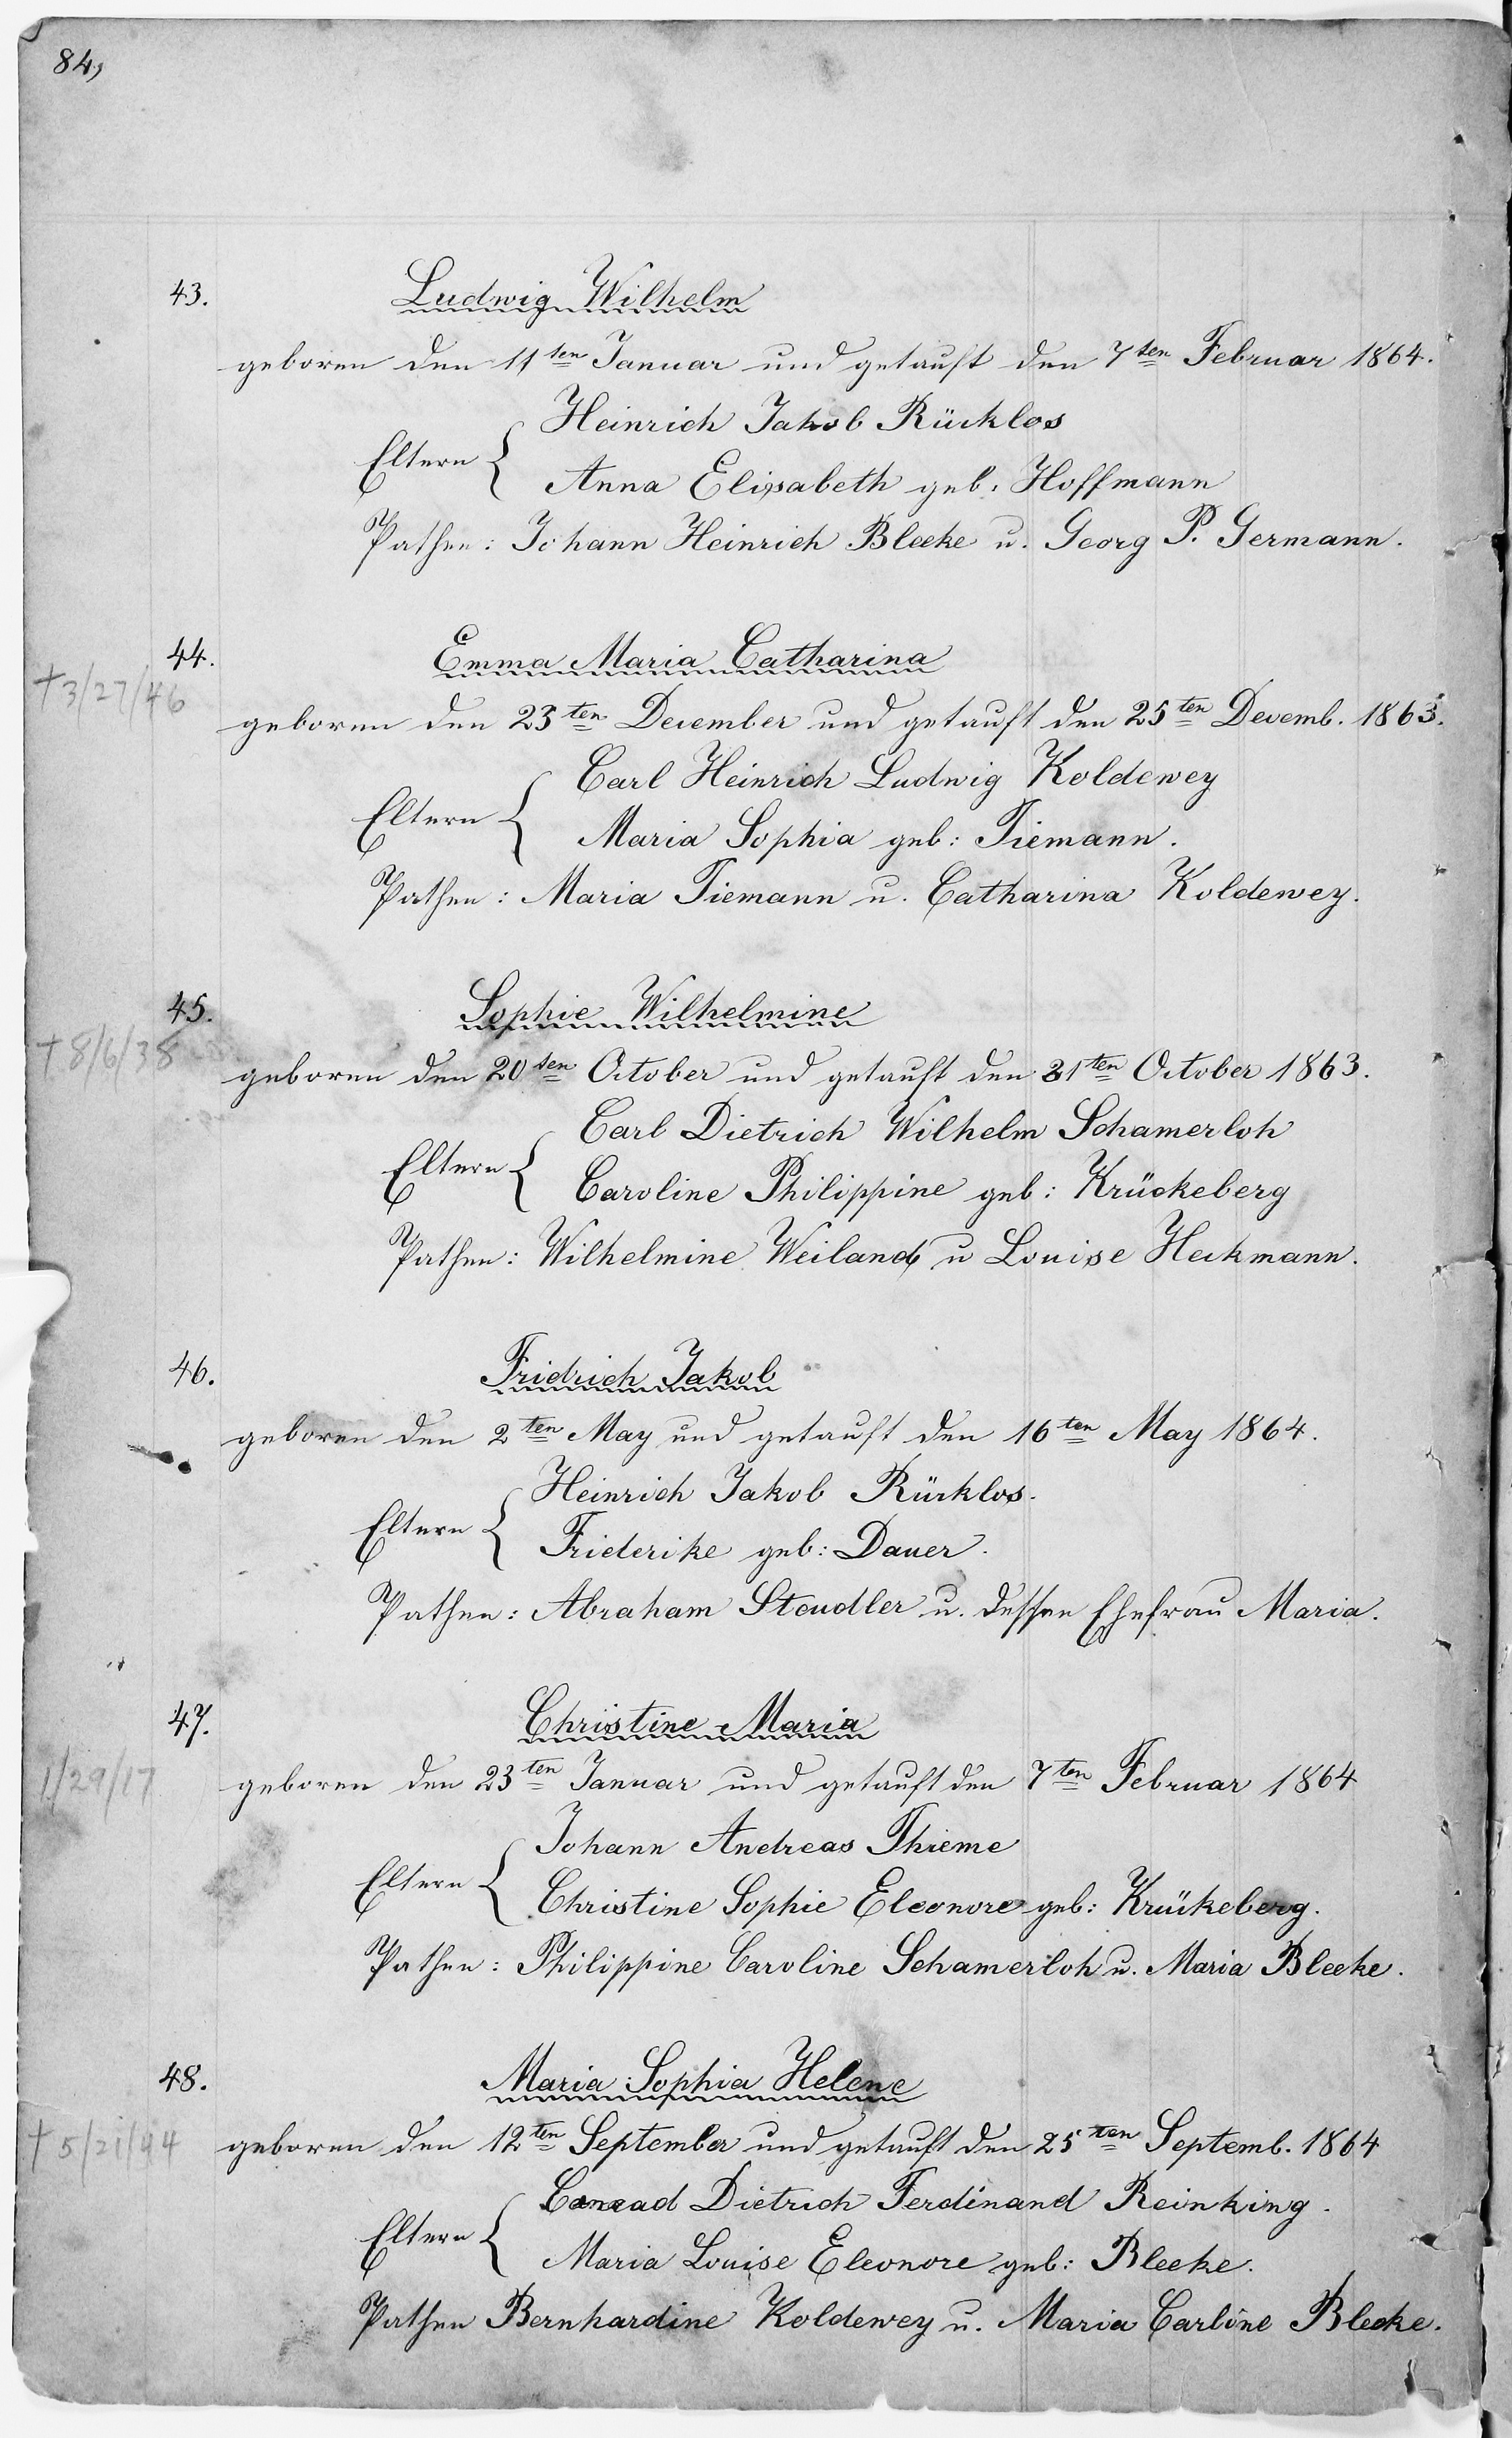 84,
43. Ludwig Wilhelm
geboren den 11ten Januar und getauft den 7ten Februar 1864.
Heinrich Jakob Rücklos
Eltern {
Anna Elisabeth geb: Hoffmann
Pathen: Johann Heinrich Blecke u. Georg P. Germann.
44. Emma Maria Catharina
†3/27/46
geboren den 23ten December und getauft den 25ten Decemb. 1863.
Carl Heinrich Ludwig Koldewey
Eltern {
Maria Sophia geb: Tiemann.
Pathen: Maria Tiemann u. Catharina Koldewey.
45. Sophie Wilhelmine
†8/6/38
geboren den 20ten October und getauft den 31ten October 1863.
Carl Dietrich Wilhelm Schamerloh
Eltern {
Caroline Philippine geb: Krückeberg
Pathen: Wilhelmine Weiland u Louise Heckmann.
46. Fridrich Jakob
geboren den 2ten May und getauft den 16ten May 1864.
Heinrich Jakob Rücklos.
Eltern {
Friederike geb: Dauer.
Pathen: Abraham Steudler u. dessen Ehefrau Maria.
47. Christine Maria
1/29/17
geboren den 23ten Januar und getauft den 7ten Februar 1864
Johann Andreas Thieme
Eltern {
Christine Sophie Eleonore geb: Krückeberg.
Pathen: Philippine Caroline Schamerloh u. Maria Blecke.
48. Maria Sophia Helene
†5/21/44
geboren den 12ten September und getauft den 25ten Septemb. 1864
Conrad Dietrich Ferdinand Reinking.
Eltern {
Maria Louise Eleonore geb: Blecke.
Pathen Bernhardine Koldewey u. Maria Carline Blecke.